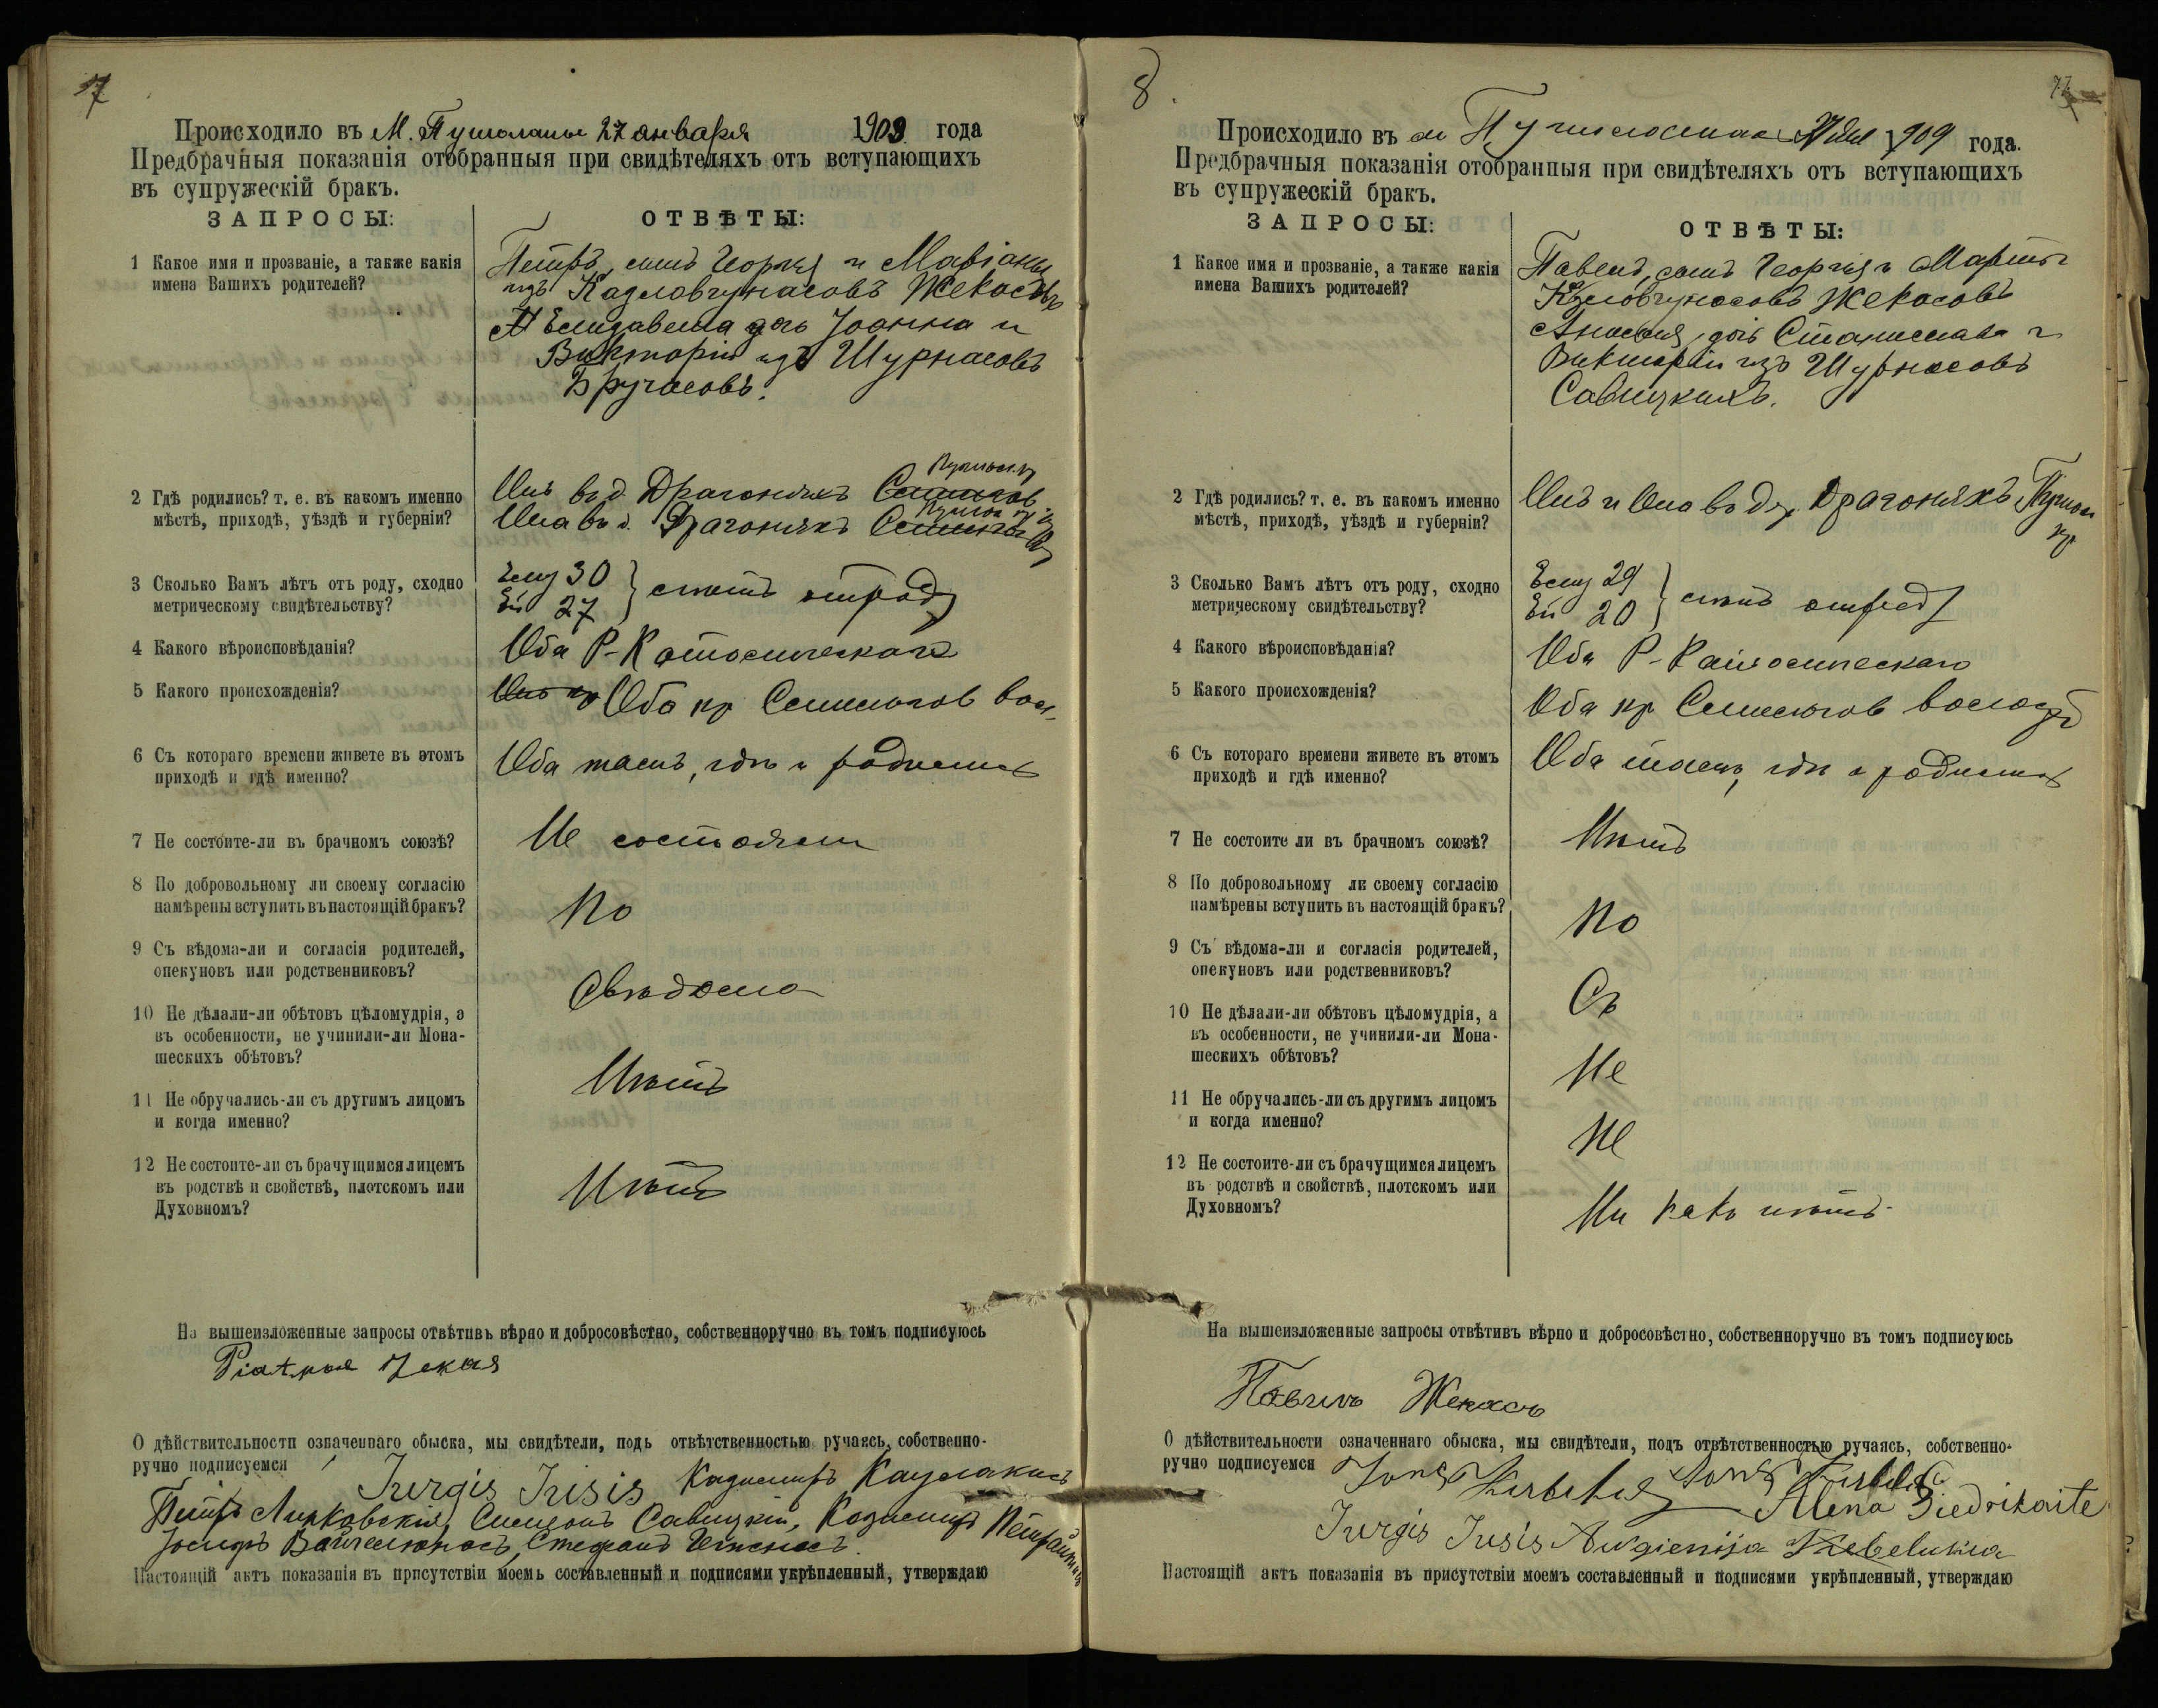 17
Происходило въ М. Пушолаты 27 января 1909 года
Предбрачныя показанія отобранныя при свидѣтеляхъ отъ вступающихъ
въ супружескій бракъ.
ЗАПРОСЫ:
ОТВѢТЫ:
1 Какое имя и прозваніе, а также какія
имена Вашихъ родителей?
Петръ, сынъ Георгія и Маріаны
изъ Жекасовъ
А Елизавета дочь Іоанна и
Викторіи изъ Шурнасовъ
Бручасовъ.
2 Гдѣ родились? т. е. въ какомъ именно
мѣстѣ, приходѣ, уѣздѣ и губерніи?
Онъ въ д. Драгоняхъ
Она въ д. Драгоняхъ
3 Сколько Вамъ лѣтъ отъ роду, сходно
метрическому свидѣтельству?
Ему 30
Ей 27 } лѣтъ отроду
4 Какого вѣроисповѣданія?
Оба Р-Католическаго
5 Какого происхожденія?
Оба кр вол.
6 Съ котораго времени живете въ этомъ
приходѣ и гдѣ именно?
Оба тамъ, гдѣ и родились
7 Не состоите-ли въ брачномъ союзѣ?
Не состояли
8 По добровольному ли своему согласію
намѣрены вступить въ настоящій бракъ?
По
9 Съ вѣдома-ли и согласія родителей,
опекуновъ или родственниковъ?
Свѣдома
10 Не дѣлали-ли обѣтовъ цѣломудрія, а
въ особенности, не учинили-ли Мона-
шескихъ обѣтовъ?
Нѣтъ
11 Не обручались-ли съ другимъ лицомъ
и когда именно?
12 Не состоите-ли съ брачущимся лицемъ
въ родствѣ и свойствѣ, плотскомъ или
Духовномъ?
Нѣтъ
На вышеизложенные запросы отвѣтивъ вѣрно и добросовѣстно, собственноручно въ томъ подписуюсь
О дѣйствительности означеннаго обыска, мы свидѣтели, подъ отвѣтственностью ручаясь, собственно-
ручно подписуемся
Jurgis Jusis Казимиръ
Петръ Янковскій, Симеонъ Савицкій, Казимиръ
Іосифъ Стефанъ
Настоящій актъ показанія въ присутствіи моемъ составленный и подписями укрѣпленный, утверждаю
8
Происходило въ м 1909 года.
Предбрачныя показанія отобранныя при свидѣтеляхъ отъ вступающихъ
въ супружескій бракъ.
ЗАПРОСЫ:
ОТВѢТЫ:
1 Какое имя и прозваніе, а также какія
имена Вашихъ родителей?
Павелъ, сынъ Георгія и Марты
Жекасовъ
дочь Станислава и
Викторіи изъ Шурнасовъ
Савицкихъ.
2 Гдѣ родились? т. е. въ какомъ именно
мѣстѣ, приходѣ, уѣздѣ и губерніи?
Онъ и Она въ дер. Драгоняхъ
3 Сколько Вамъ лѣтъ отъ роду, сходно
метрическому свидѣтельству?
Ему 29
Ей 20 } лѣтъ отроду
4 Какого вѣроисповѣданія?
Оба Р-Католическаго
5 Какого происхожденія?
Оба кр
6 Съ котораго времени живете въ этомъ
приходѣ и гдѣ именно?
Оба тамъ, гдѣ и родились
7 Не состоите ли въ брачномъ союзѣ?
Нѣтъ
8 По добровольному ли своему согласію
намѣрены вступить въ настоящій бракъ?
По
9 Съ вѣдома-ли и согласія родителей,
опекуновъ или родственниковъ?
Съ
10 Не дѣлали-ли обѣтовъ цѣломудрія, а
въ особенности, не учинили-ли Мона-
шескихъ обѣтовъ?
Не
11 Не обручались-ли съ другимъ лицомъ
и когда именно?
Не
12 Не состоите-ли съ брачущимся лицемъ
въ родствѣ и свойствѣ, плотскомъ или
Духовномъ?
Ни какъ нѣтъ
На вышеизложенные запросы отвѣтивъ вѣрно и добросовѣстно, собственноручно въ томъ подписуюсь
Жекасъ
О дѣйствительности означеннаго обыска, мы свидѣтели, подъ отвѣтственностью ручаясь, собственно-
ручно подписуемся
Alena Giedrikaite
Jurgis Jusis
Настоящій актъ показанія въ присутствіи моемъ составленный и подписями укрѣпленный, утверждаю